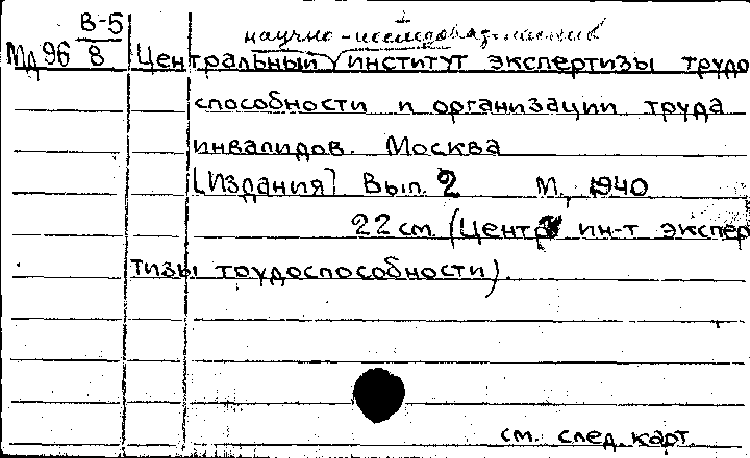 В-5
научно-исследовательский
Мд 96 8 Центральный институт экспертизы трудо
способности и организации труда
инвалидов. Москва
[Издания] Вып. 2 М., 1940
22 см (Центр ин-т экспер
тизы трудоспособности).
см. след. карт.